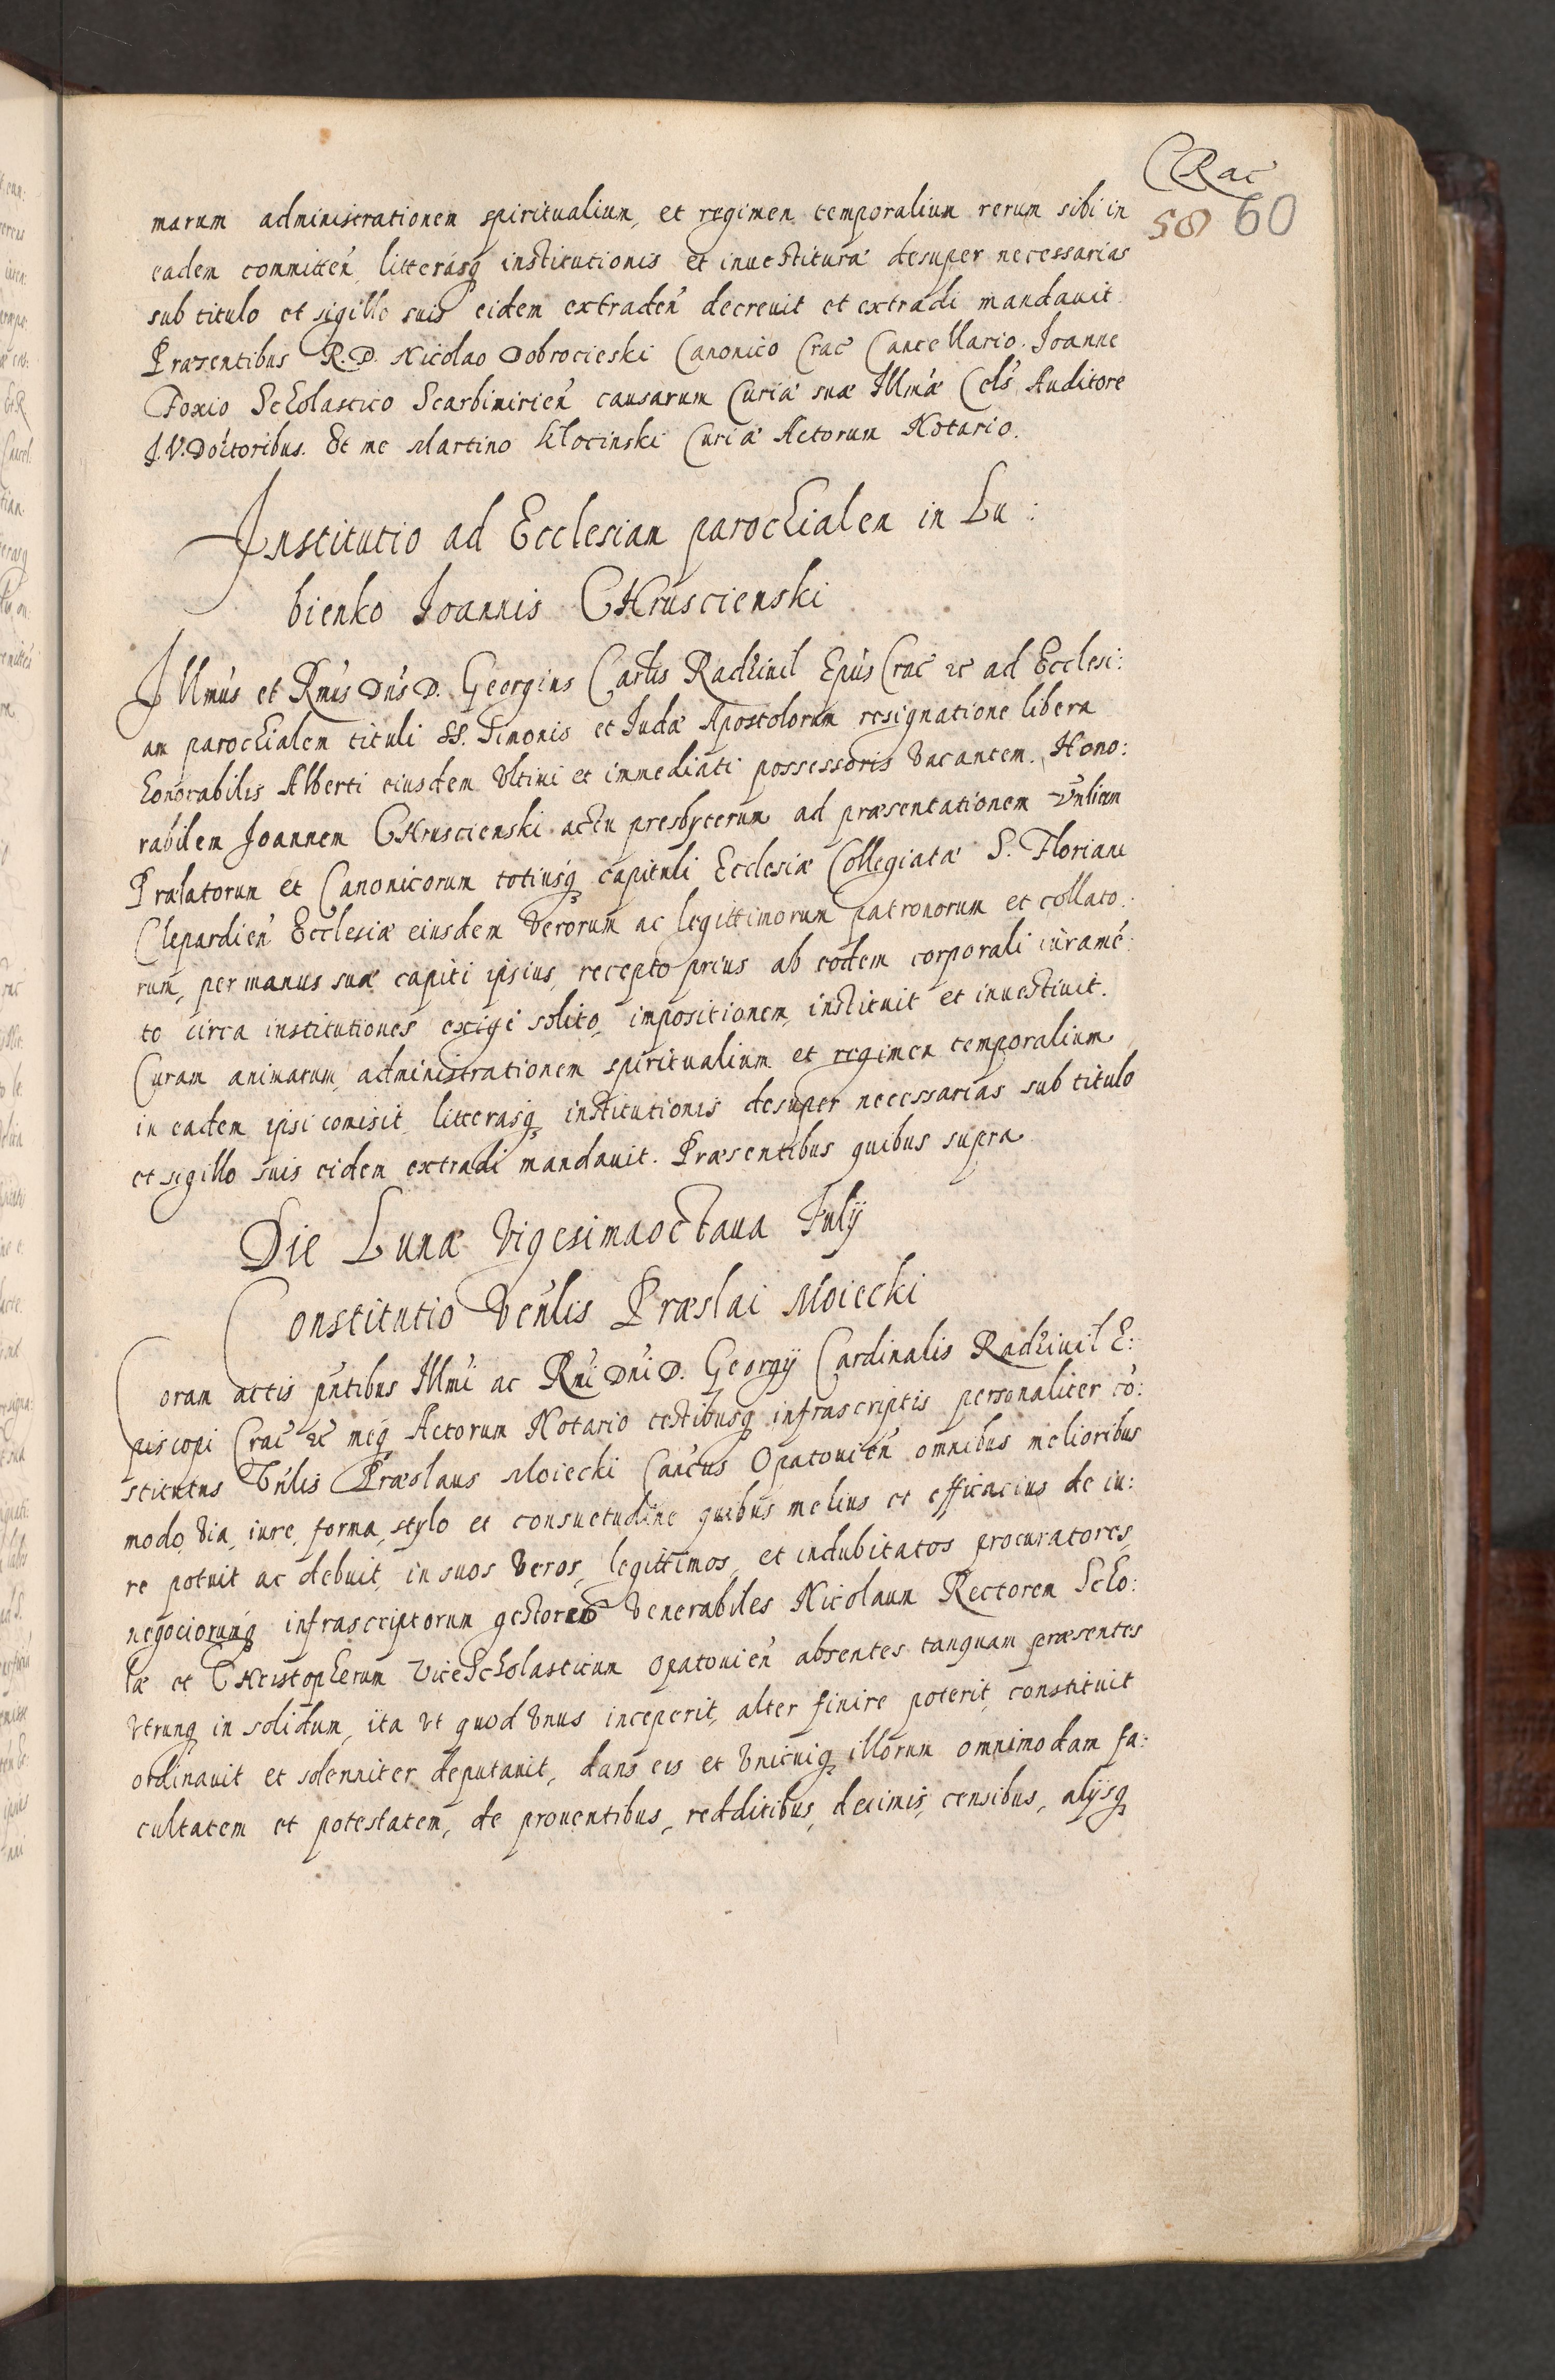 CRac̃
58 60
marum administrationem spiritualium, et regimen temporalium rerum sibi in
eadem committeñ litterasq́ institutionis et inuestituræ desuper necessarias
sub titulo et sigillo suis eidem extradeñ decreuit et extradi mandauit.
Præsentibus R.D. Nicolao Dobrocieski Canonico Crac̃ Cancellario. Ioanne
Foxio Scholastico Scarbimirieñ causarum Curiæ suæ Illmæ Cels̃ Auditore
I.V. Doctoribus. Et me Martino Klocinski Curiæ Actorum Notario.
Institutio ad Ecclesiam parochialem in Lu:
bienko Ioannis CHruscienski
Illmus et Rm̃us Dnus D. Georgius Card̃lis Radziuil Ep̃us Crac̃ ꝛc ad Ecclesi:
am parochialem tituli SS. Simonis et Iudæ Apostolorum resignatione libera
honorabilis Alberti eiusdem vltimi et immediati possessoris vacantem. Hono:
rabilem Ioannem CHruscienski actu presbyterum ad præsentationem Vnlium
Prælatorum et Canonicorum totiusq́ capituli Ecclesiæ Collegiatæ S. Floriani
Clepardieñ Ecclesiæ eiusdem verorum ac legittimorum patronorum et collato:
rum, per manus suæ capiti ipsius, recepto prius ab eodem corporali iuramẽ:
to circa institutiones exigi solito, impositionem, instituit et inuestiuit.
Curam animarum, administrationem spiritualium et regimen temporalium
in eadem ipsi comisit, litterasq́ institutionis desuper necessarias sub titulo
et sigillo suis eidem extradi mandauit. Præsentibus quibus supra
Die Lunæ vigesimaoctaua Iulij
Constitutio Veñlis Præslai Moiecki
Coram actis pñtibus Illmi ac Rm̃i Dñi D. Georgij Cardinalis Radziuil E:
piscopi Crac̃ ꝛc meq́ Actorum Notario testibusq́ infrascriptis personaliter cõ:
stitutus Vñlis Præslaus Moiecki Cañcus Opatouieñ omnibus melioribus
modo, via, iure, forma, stylo et consuetudine quibus melius et efficacius de iu:
re potuit ac debuit, in suos veros, legittimos, et indubitatos procuratores,
negociorumq́ infrascriptorum gestores Venerabiles Nicolaum Rectorem Scho:
læ et CHristopherum ViceScholasticum Opatouieñ absentes tanquam præsentes
vtrunq́ in solidum, ita vt quod vnus inceperit, alter finire poterit, constituit
ordinauit et solenniter deputauit, dans eis et vnicuiq́ illorum omnimodam fa:
cultatem et potestatem, de prouentibus, redditibus, decimis, censibus, alijsq́